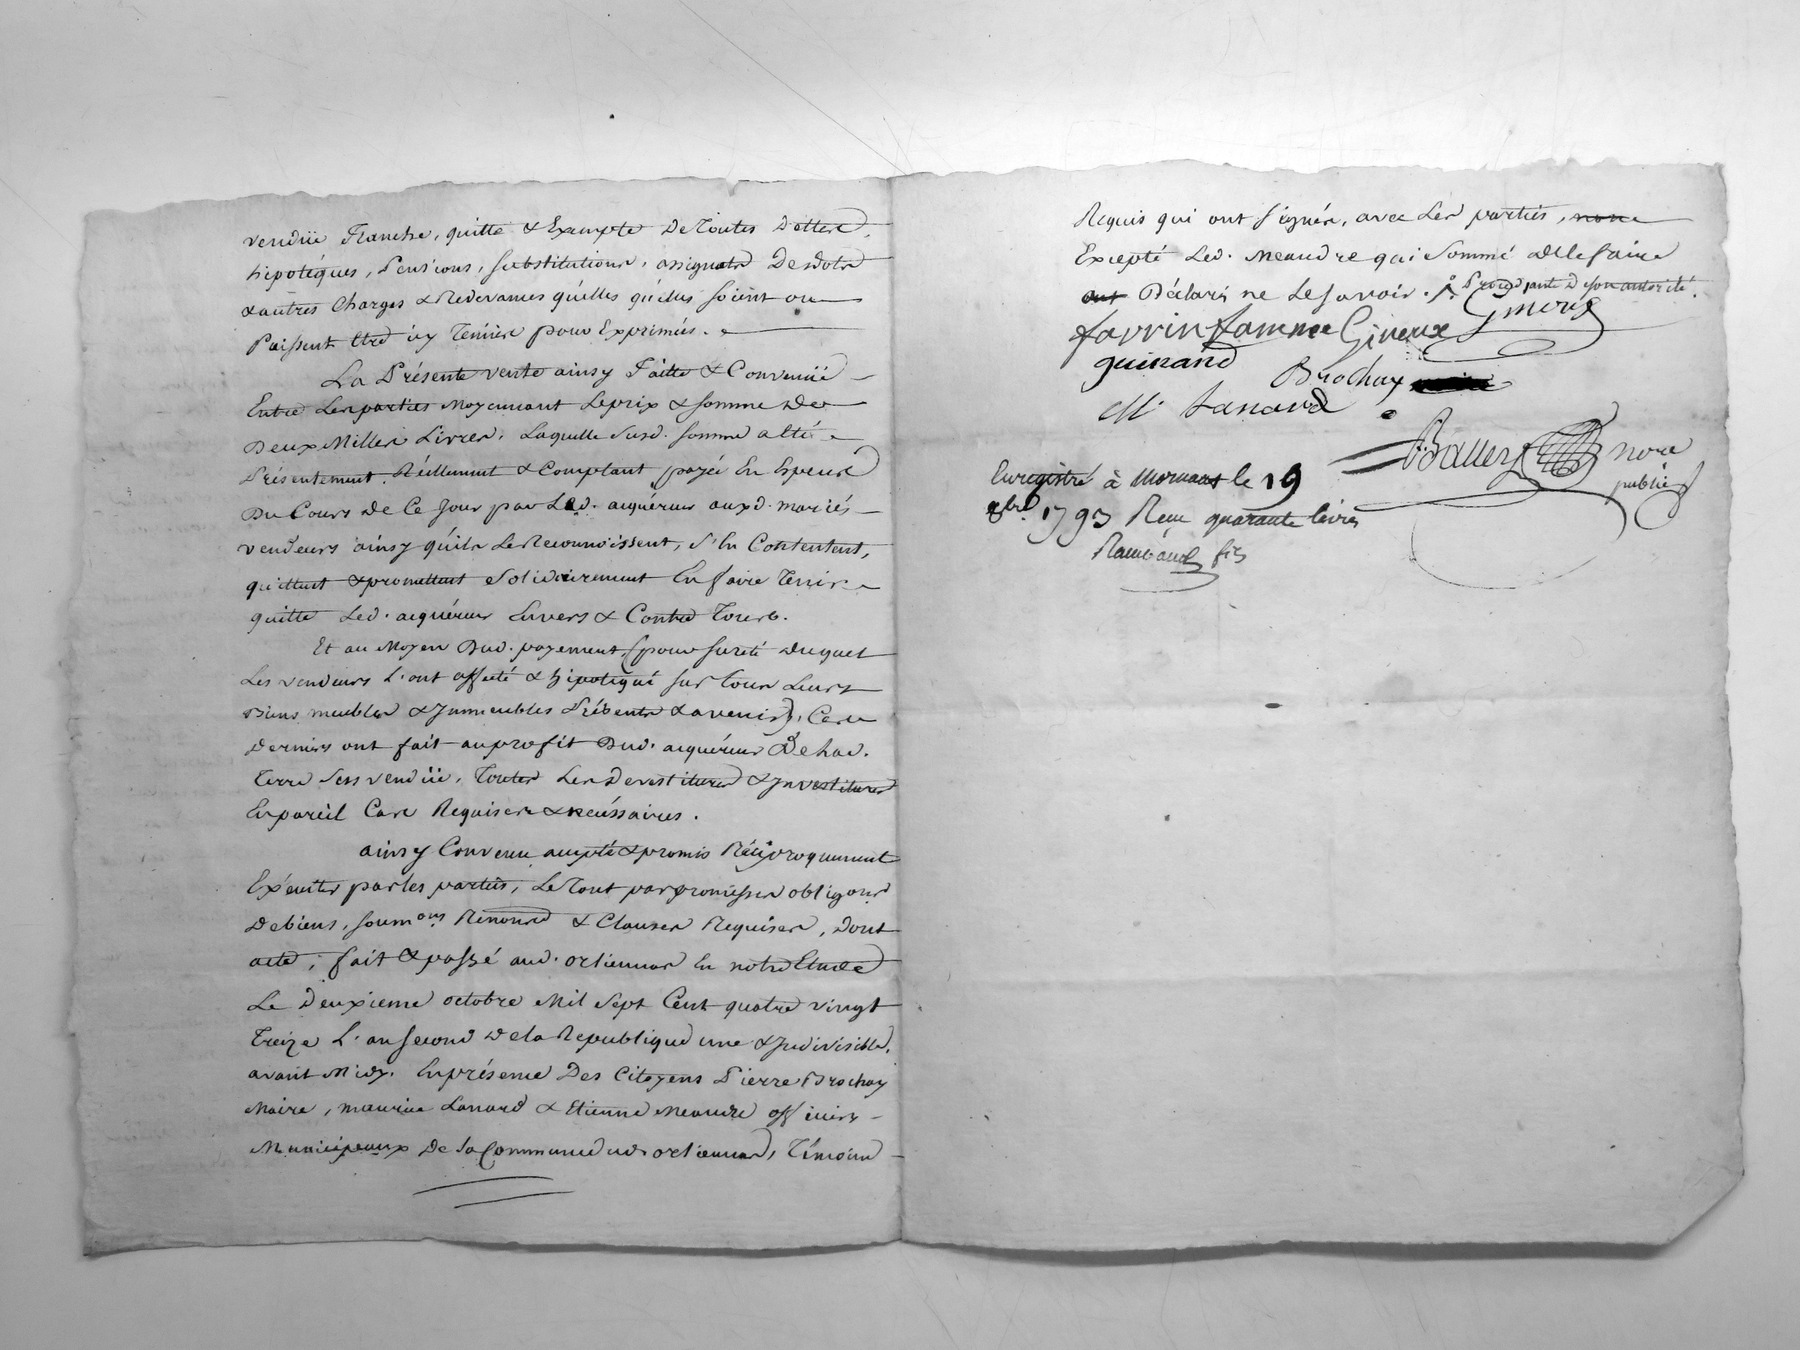 vendüe Franche, quitte & Exempte De Toutes Dettes,
hipotéques, Pensions, substitutions, assignats De dots
& autres Charges & Redevances qu'elles qu'elles soient ou
Puissent être icy Tenües pour Exprimées.
La Présente vente ainsy Faitte & Convenüe
Entre Les parties Moyennant Le prix & somme De
Deux Milles Livres, Laquelle susd. somme a été
Présentement, Réellement & Comptant payée En Especes
Du Cours de Ce Jour par Led. acquéreur auxd. mariés
vendeurs ainsy qu'ils Le Reconnoissent, s'En Contentent,
quittent & promettent solidairement En faire Tenir
quitte Led. acquéreur Envers & Contre Tous.
Et au Moyen Dud. payement (pour sureté duquel
Les vendeurs l'ont affecté & hipotequé sur tous Leurs
Biens meubles & Immeubles Présents & avenir), Ces
Derniers ont fait au profit Dud. acquéreur De lad.
Terre sus vendüe, Toutes Les Devestitures & Investitures
En pareil Cas Requises & nécéssaires.
ainsy Convenu accepté & promis Réciproquement
Exécuter par les parties, Le Tout par promesses obligons
De biens, soumons Renons & Clauses Requises, Dont
acte, fait & passé aud. orlienas En notre Etude
Le Deuxieme octobre Mil Sept Cent quatre vingt
Treize L'an second De la Republique une & Indivisible,
avant Midy. En présence Des Citoyens Pierre Brochay
Maire, maurice Lanard & Etienne Meaudre officiers
Municipaux De la Commune dud. orlienas, Témoins
Requis qui ont signés, avec Les parties, non
Excepté Led. Meaudre qui sommé De le faire
ont Déclaré ne Le savoir.
favrin famme Giraux
guinand Brochay
M. Lanard
Enregistré à Mornant le 19
8bre 1793 Reçu quarante livres
Rambaud fils
nore
public